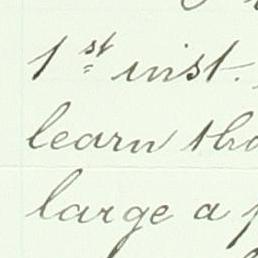 1st inst.
learn tha
large a